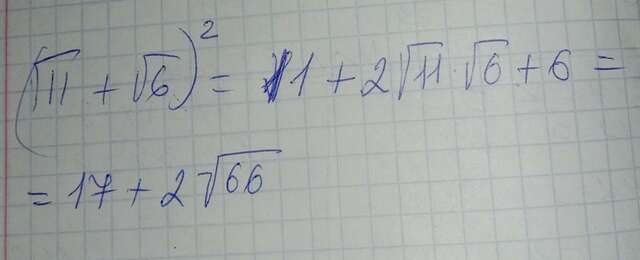 (√11 + √6)² = 11 + 2√11 √6 + 6 =
= 17 + 2√66